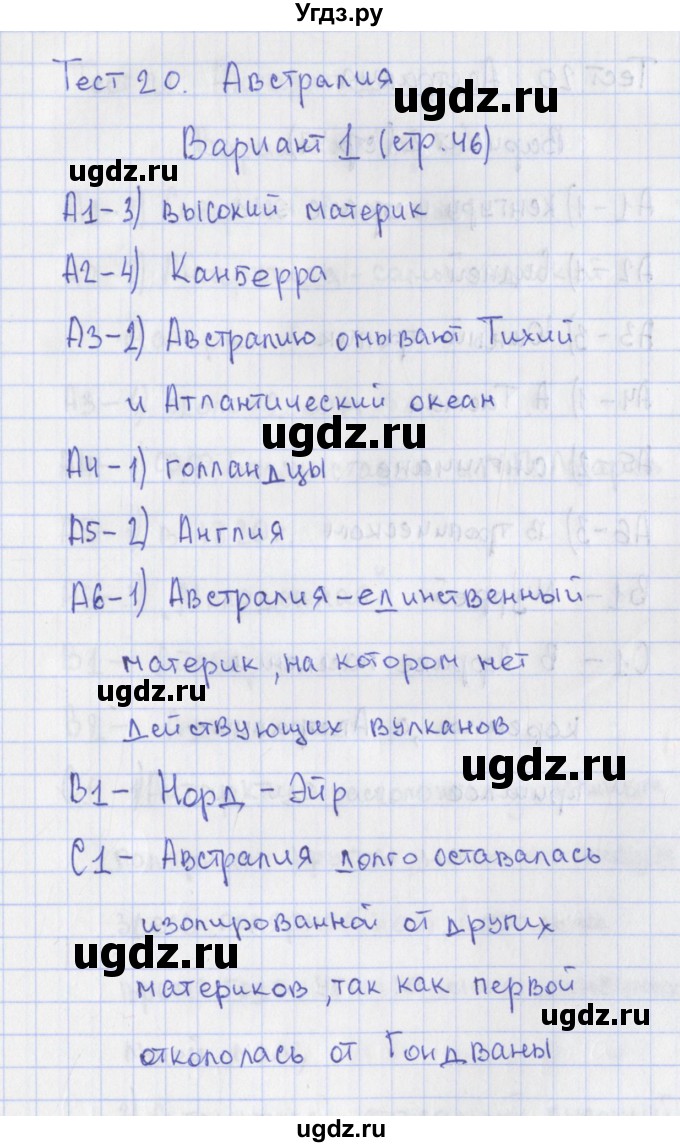 Угдз.ру
Тест 20. Австралия
ugdz.ru
Вариант 1 (стр.46)
ugdz.ru
А1-3) высокий материк
А2-4) Канберра
А3-2) Австралию омывают Тихий
и Атлантический океан
ugdz.ru
А4-1) голландцы
А5-2) Англия
А6-1) Австралия-единственный
материк, на котором нет
ugdz.ru
действующих вулканов
ugdz.ru
В1- Норд-Эйр
С1- Австралия долго оставалась
изолированной от других
ugdz.ru
материков, так как первой
ugdz.ru
откололась от Гондваны
ugdz.ru